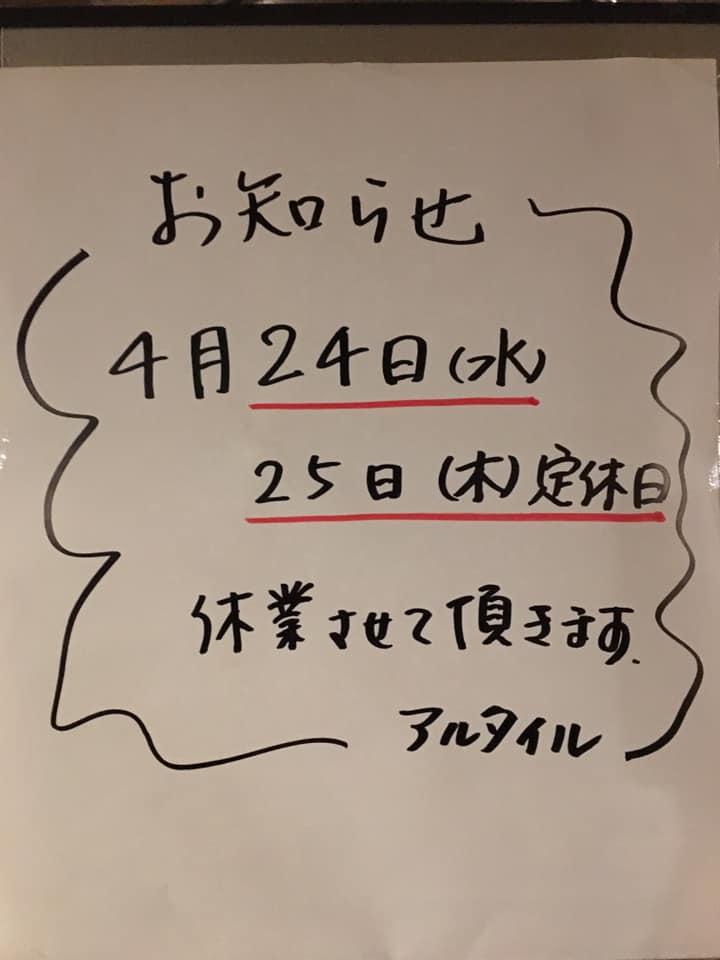 お知らせ
4月24日(水)
25日(木)定休日
休業させて頂きます.
アルタイル